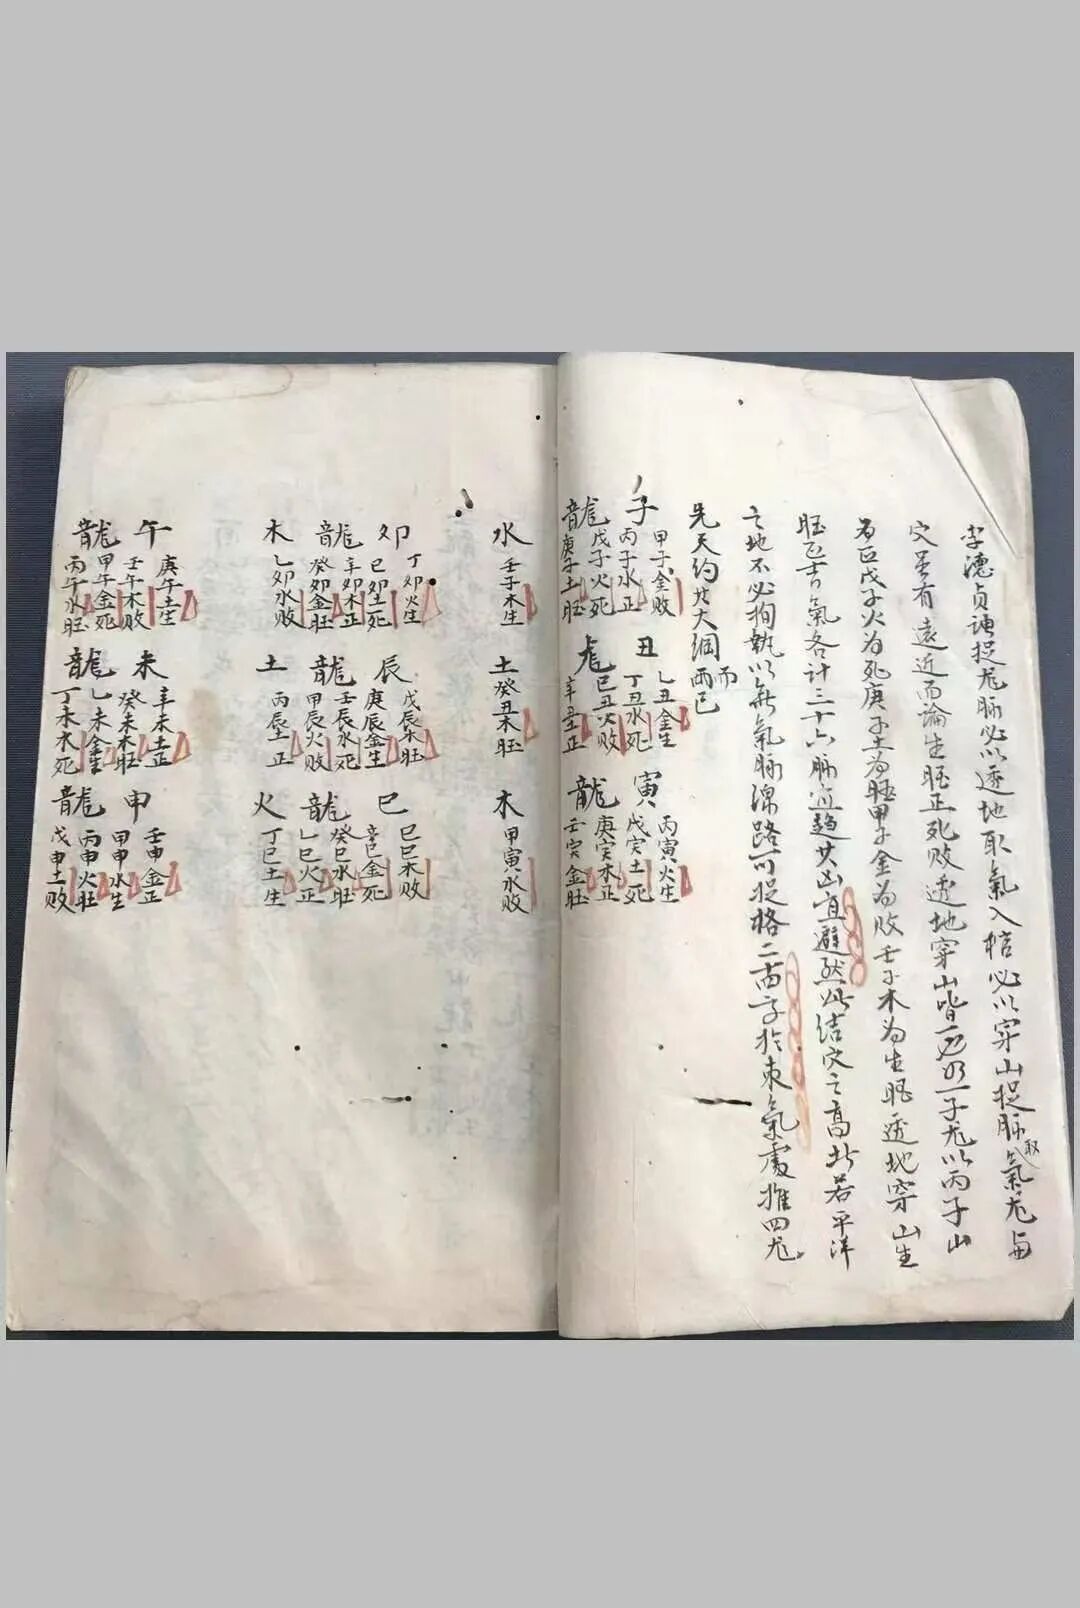 李德貞訣捉龙脉必以透地取氣入棺必以穿山捉脉取氣龙與
穴虽有遠近而論生旺正死敗透地穿山皆一也如子龙以丙子山
為正戊子火為死庚子土為旺甲子金為敗壬子木為生旺透地穿山生
旺正吉氣各計三十六脉宜趋其凶宜避然此结穴之高此若平洋
之地不必拘執以無氣脉滌路可捉格二苗字於束氣處推四龙
先天约其大綱而已
而
子龍
甲子金敗
丙子水正
戊子火死
庚子土旺
丑龙
乙丑金生
丁丑水死
己丑火敗
辛丑土正
寅龍
丙寅火生
戊寅土死
庚寅木正
壬寅金旺
水
壬子木生
土
癸丑木旺
木
甲寅水敗
卯龍木
丁卯火生
己卯土死
辛卯木正
癸卯金旺
乙卯水敗
辰龍土
戊辰木旺
庚辰金生
壬辰水死
甲辰火敗
丙辰土正
巳龍火
己巳木敗
辛巳金死
癸巳水旺
乙巳火正
丁巳土生
午龍
庚午土生
壬午木敗
甲午金死
丙午水旺
未龍
辛未土正
癸未木旺
乙未金生
丁未水死
申龍
壬申金正
甲申水生
丙申火旺
戊申土敗